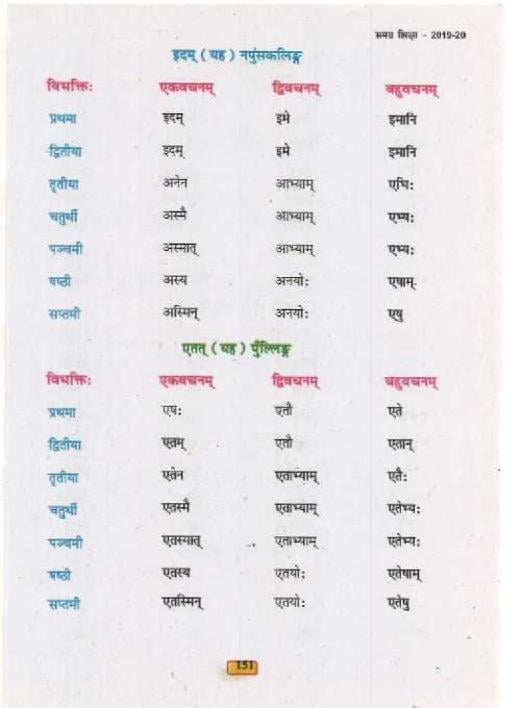 समग्र शिक्षा - 2019-20
इदम् ( यह ) नपुंसकलिङ्ग
विभक्तिः एकवचनम् द्विवचनम् बहुवचनम्
प्रथमा इदम् इमे इमानि
द्वितीया इदम् इमे इमानि
तृतीया अनेन आभ्याम् एभिः
चतुर्थी अस्मै आभ्याम् एभ्यः
पञ्चमी अस्मात् आभ्याम् एभ्यः
षष्ठी अस्य अनयोः एषाम्
सप्तमी अस्मिन् अनयोः एषु
एतत् ( यह ) पुँल्लिङ्ग
विभक्तिः एकवचनम् द्विवचनम् बहुवचनम्
प्रथमा एषः एतौ एते
द्वितीया एतम् एतौ एतान्
तृतीया एतेन एताभ्याम् एतैः
चतुर्थी एतस्मै एताभ्याम् एतेभ्यः
पञ्चमी एतस्मात् एताभ्याम् एतेभ्यः
षष्ठी एतस्य एतयोः एतेषाम्
सप्तमी एतस्मिन् एतयोः एतेषु
151